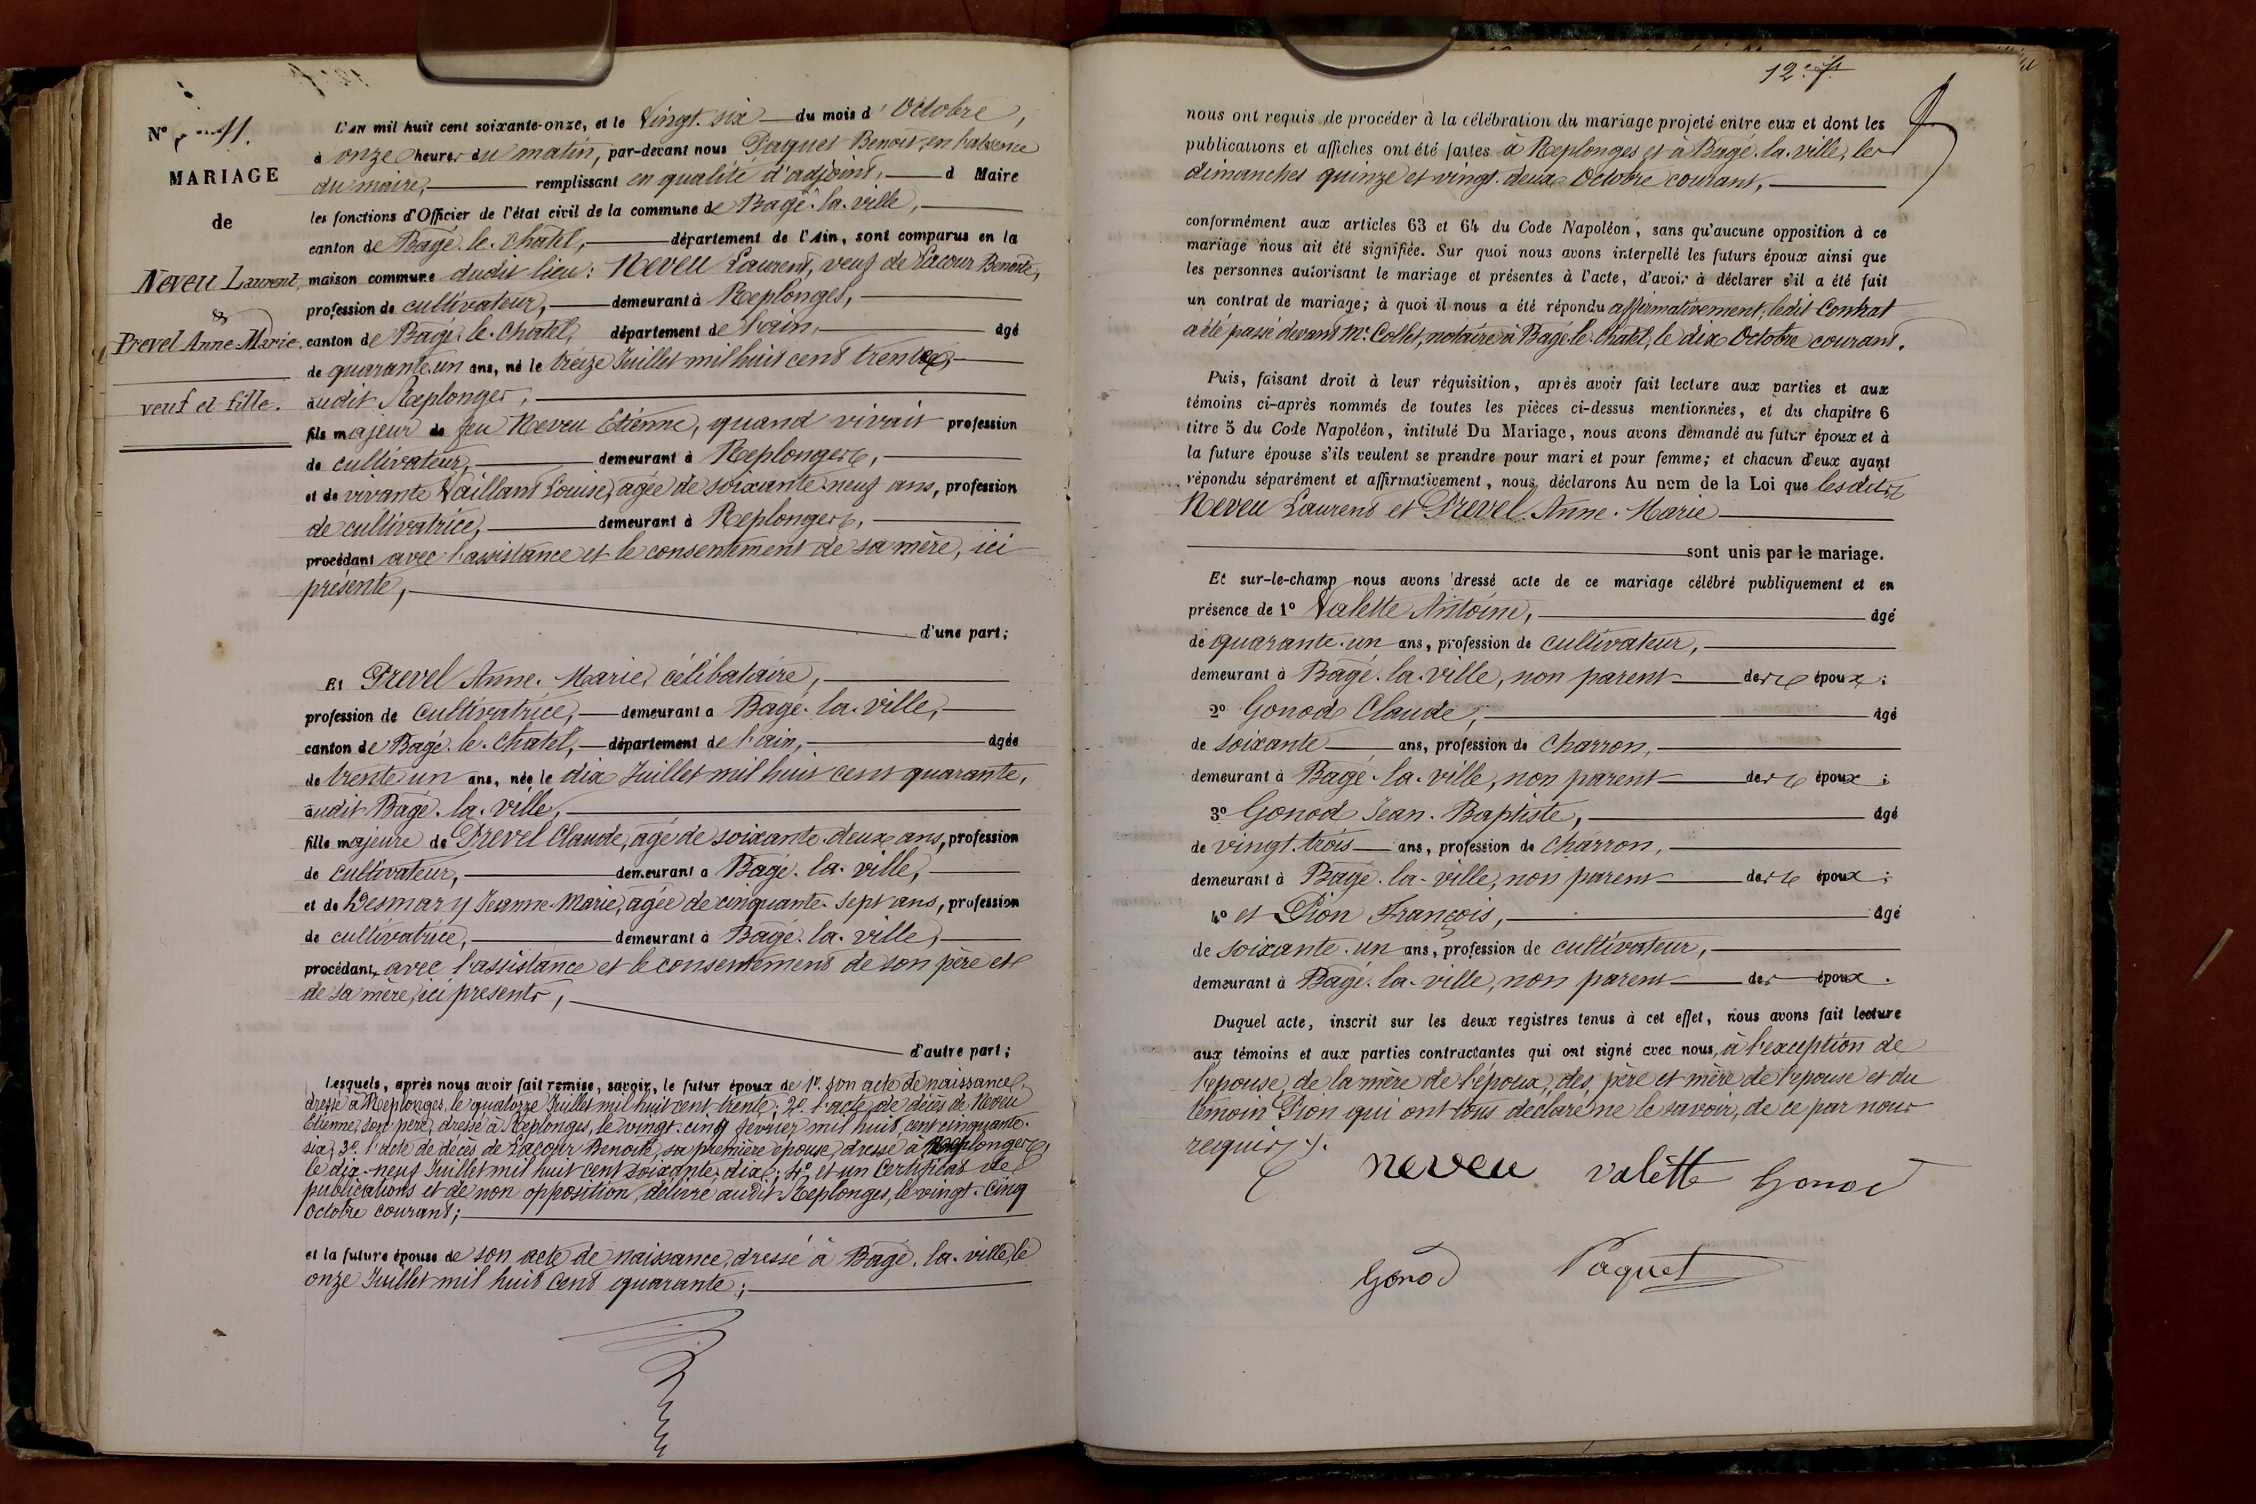 N° 11.
MARIAGE
de
Neveu Laurent,
&
Prevel Anne Marie.
veuf et fille.
L'an mil huit cent soixante-onze, et le Vingt-six du mois d'Octobre,
à onze heures du matin, par-devant nous Paquet Benoit, en l'absence
du maire, remplissant en qualité d'adjoint, d Maire
les fonctions d'Officier de l'état civil de la commune de Bagé-la-ville,
canton de Bagé-le-Chatel, département de l'Ain, sont comparus en la
maison commune dudit lieu: Neveu Laurent, veuf de Lacour Benoite,
profession de cultivateur, demeurant à Replonges,
canton de Bagé-le-Chatel, département de l'ain, âgé
de quarante-un ans, né le treize Juillet mil huit cent trente,
audit Replonges,
fils majeur de feu Neveu Etienne, quand vivait profession
de cultivateur, demeurant à Replonges,
et de vivante Vaillant Louise, agée de soixante-neuf ans, profession
de cultivatrice, demeurant à Replonges,
procédant avec l'assistance et le consentement de sa mère, ici
présente,
d'une part;
Et Prevel Anne-Marie, célibataire,
profession de cultivatrice, demeurant à Bagé-la-ville,
canton de Bagé-le-Chatel, département de l'ain, âgée
de trente-un ans, née le dix Juillet mil huit cent quarante,
audit Bagé-la-ville,
fille majeure de Prevel Claude, agé de soixante-deux ans, profession
de cultivateur, demeurant à Bagé-la-ville,
et de Desmary Jeanne-Marie, agée de cinquante-sept ans, profession
de cultivatrice, demeurant à Bagé-la-ville,
procédant, avec l'assistance et le consentement de son père et
de sa mère, ici présents,
d'autre part;
Lesquels, après nous avoir fait remise, savoir, le futur époux de 1° son acte de naissance,
dressé à Replonges, le quatorze Juillet mil huit cent trente; 2° l'acte de décès de Neveu
Etienne, son père, dressé à Replonges, le vingt-cinq février mil huit cent cinquante-
six; 3° l'acte de décès de Lacour Benoite, sa première épouse, dressé à Replonges,
le dix-neuf Juillet mil huit cent soixante-dix; 4° et un Certificat de
publications et de non opposition, délivré audit Replonges, le vingt-cinq
Octobre courant;
et la future épouse de son acte de naissance, dressé à Bagé-la-ville, le
onze Juillet mil huit cent quarante;
12e f.
nous ont requis de procéder à la célébration du mariage projeté entre eux et dont les
publications et affiches ont été faites à Replonges et à Bagé-la-ville, les
dimanches quinze et vingt-deux Octobre courant,
conformément aux articles 63 et 64 du Code Napoléon, sans qu'aucune opposition à ce
mariage nous ait été signifiée. Sur quoi nous avons interpellé les futurs époux ainsi que
les personnes autorisant le mariage et présentes à l'acte, d'avoir à déclarer s'il a été fait
un contrat de mariage; à quoi il nous a été répondu affirmativement, ledit Contrat
a été passé devant Me Collet, notaire à Bagé-le-Chatel, le dix Octobre courant.
Puis, faisant droit à leur réquisition, après avoir fait lecture aux parties et aux
témoins ci-après nommés de toutes les pièces ci-dessus mentionnées, et du chapitre 6
titre 5 du Code Napoléon, intitulé Du Mariage, nous avons demandé au futur époux et à
la future épouse s'ils veulent se prendre pour mari et pour femme; et chacun d'eux ayant
répondu séparément et affirmativement, nous déclarons Au nom de la Loi que lesdits
Neveu Laurent et Prevel Anne-Marie
sont unis par le mariage.
Et sur-le-champ nous avons dressé acte de ce mariage célébré publiquement et en
présence de 1° Valette Antoine, âgé
de quarante-un ans, profession de cultivateur,
demeurant à Bagé-la-ville, non parent des époux;
2° Gonod Claude, âgé
de soixante ans, profession de Charron,
demeurant à Bagé-la-ville, non parent des époux;
3° Gonod Jean-Baptiste, âgé
de vingt-trois ans, profession de Charron,
demeurant à Bagé-la-ville, non parent des époux;
4° et Pion François, âgé
de soixante-un ans, profession de cultivateur,
demeurant à Bagé-la-ville, non parent des époux.
Duquel acte, inscrit sur les deux registres tenus à cet effet, nous avons fait lecture
aux témoins et aux parties contractantes qui ont signé avec nous, à l'exception de
l'épouse, de la mère de l'époux, des père et mère de l'épouse et du
témoin Pion qui ont tous déclaré ne le savoir, de ce par nous
requis.
neveu valette Gonod
Gonod Paquet